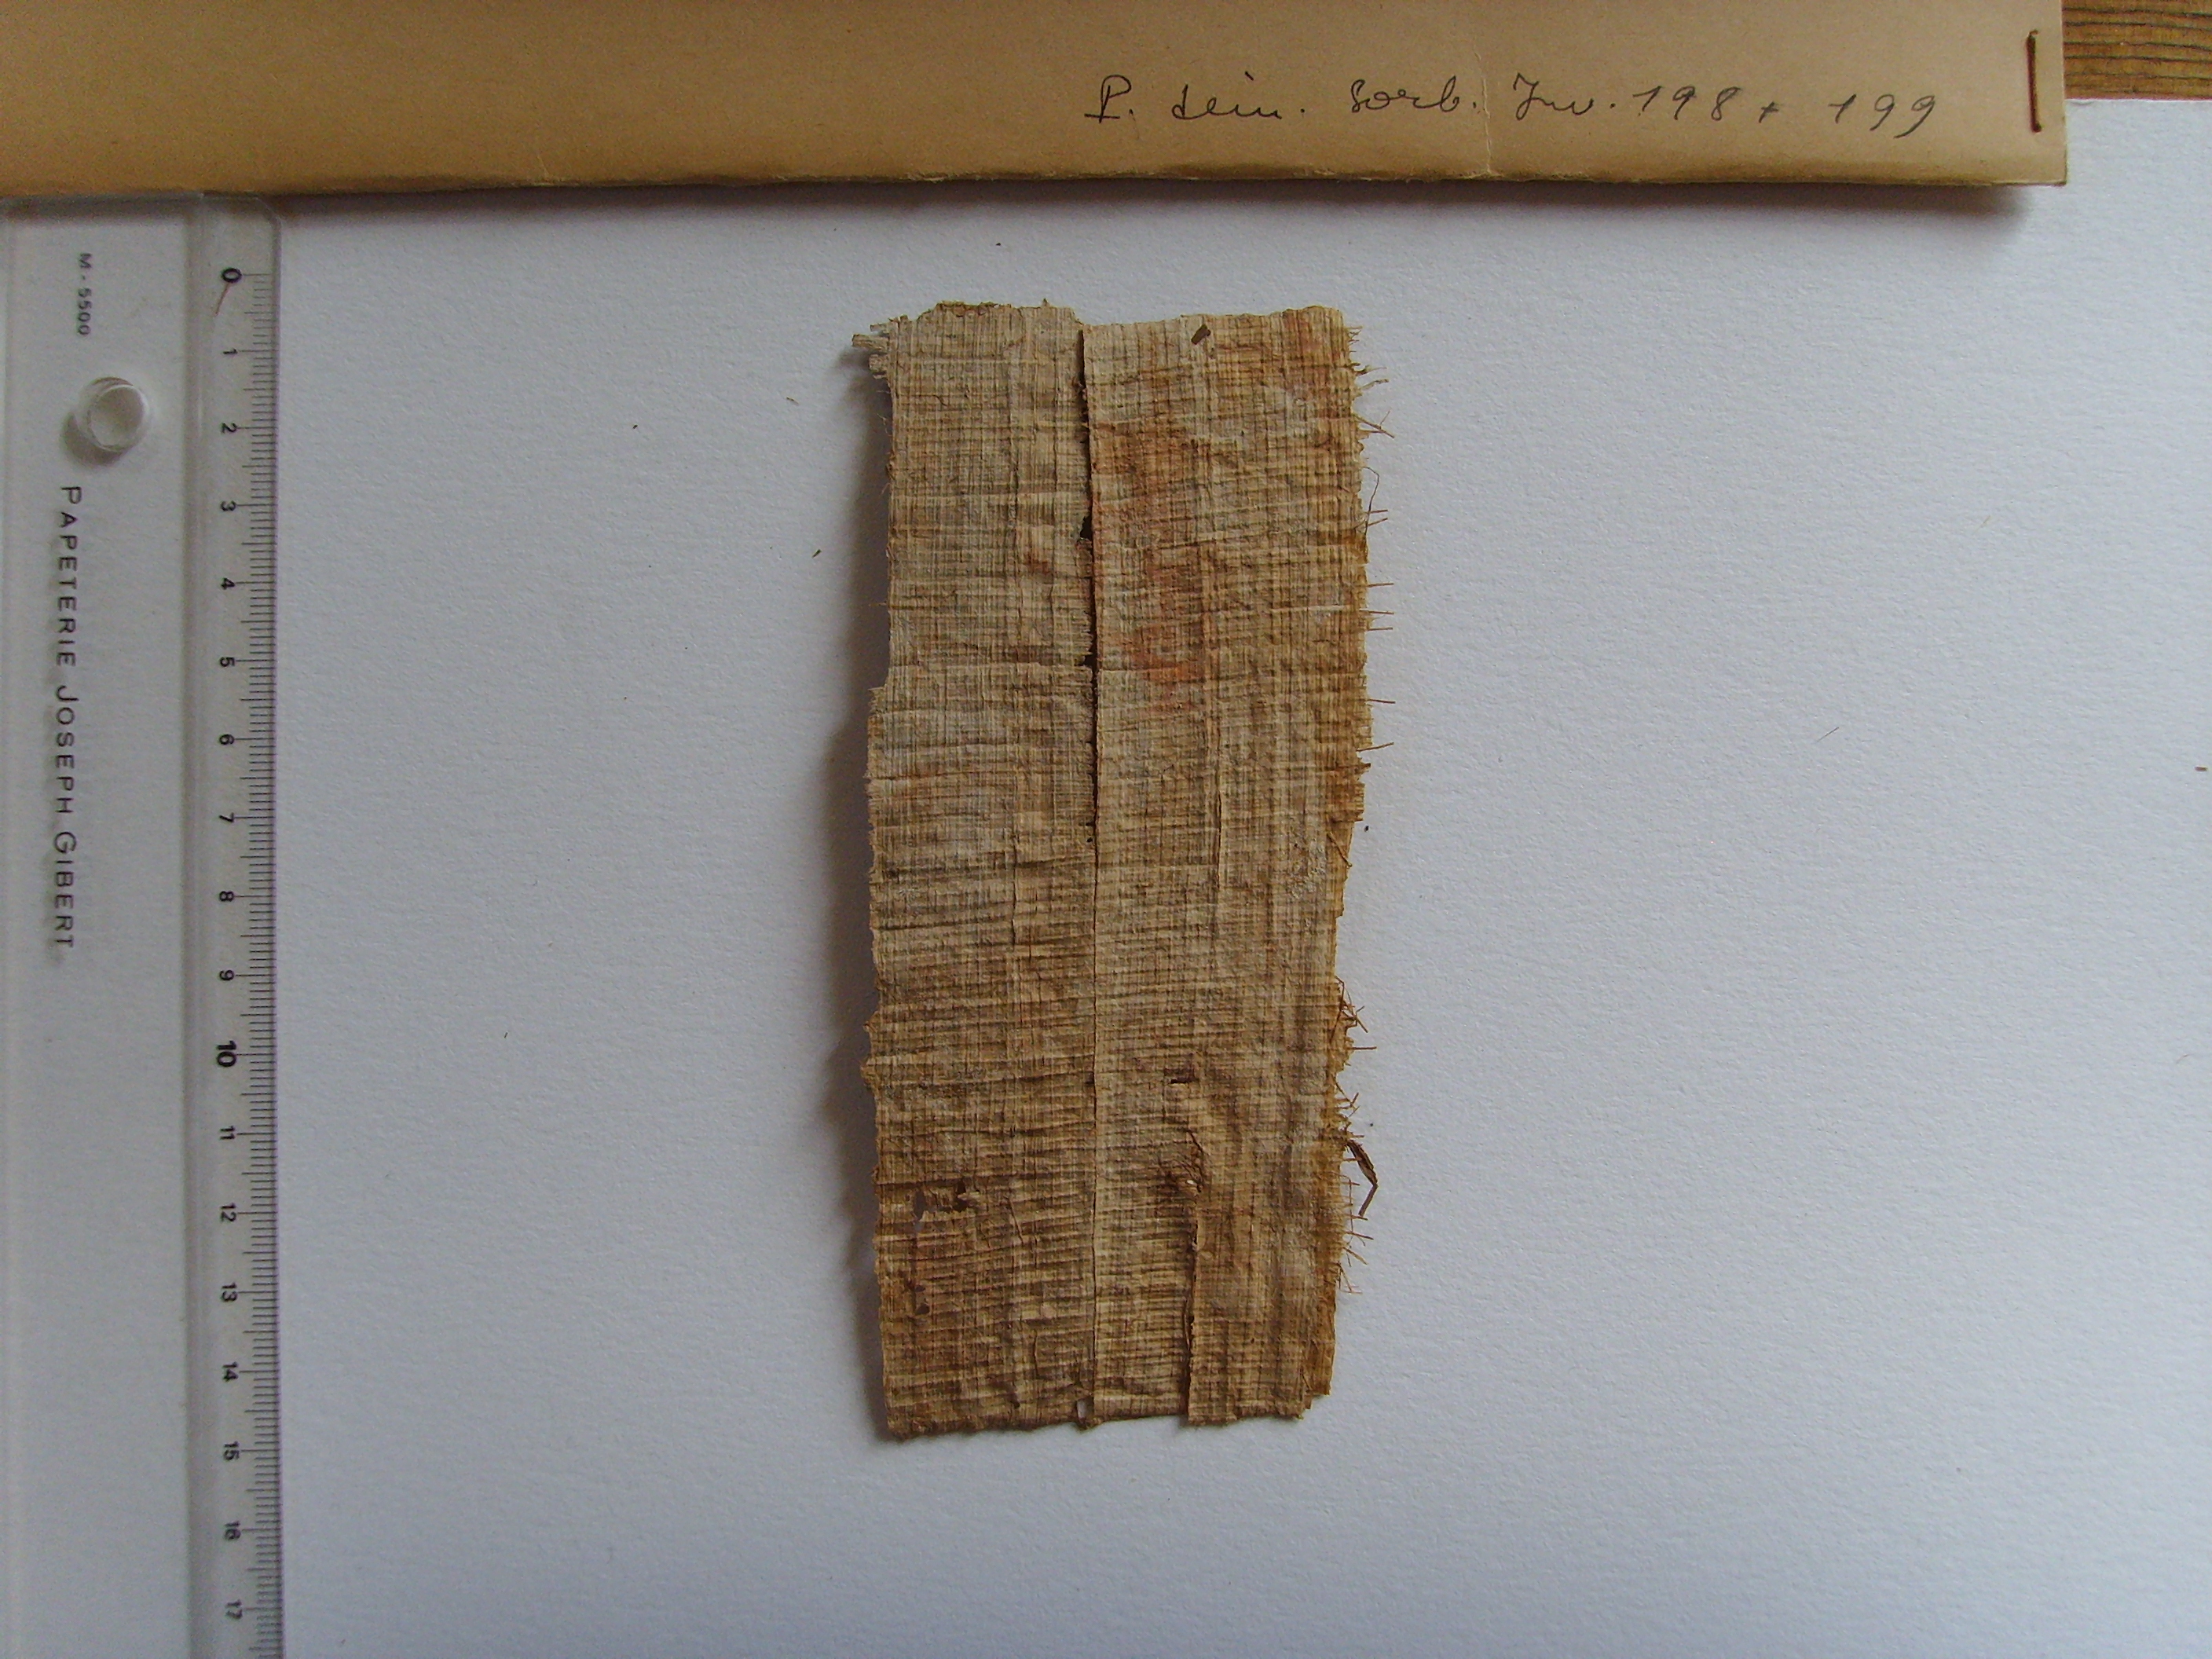 P. dem. Sorb. Inv. 198 + 199
M-5500
PAPETERIE JOSEPH GIBERT
0
1
2
3
4
5
6
7
8
9
10
11
12
13
14
15
16
17